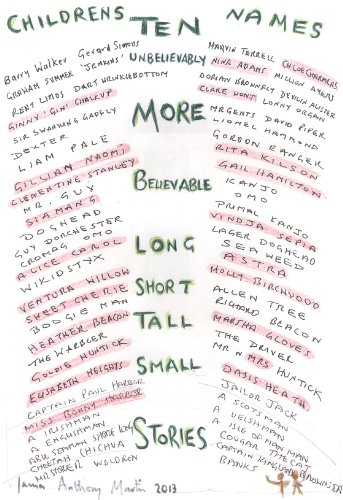 CHILDRENS TEN NAMES
UNBELIEVABLY
MORE
BELIEVABLE
LONG
SHORT
TALL
SMALL
STORIES
Barry Walker Gerard Simons
GRAHAM SUMMER 'JENKINS'
RENT LIMOS DART WRINKLEBOTTOM
GINNY 'GIN' CHALKUP
SIR SWANKUNG GADFLY
DEXTER
LIAM PALE
GILLIAN NAOMI
CLEMENTINE STANLEY
MR. GUY
SIAMANG
DOGHEAD
GUY DORCHESTER
CROMAG OMO
ALICE CAROL
WIKIDSTYX
VENTURA WILLOW
SWEET CHERIE
BOOGIE MAN
HEATHER BEACON
THE WARBLER
GOLDIE HUNTICK
ELISABETH HEIGHTS
CAPTAIN PAUL HARBOR
MISS BONNY HARBOR
A IRISHMAN
A ENGLISHMAN
ABLE SEAMAN SPARE LONG
CHEETAH CHICHUA
MR STOKER WOLDREN
MARVIN TERRELL CHLOE CHARMERS
NINA ADAMS MILLION AYERS
DORIAN BROWNLEY DEVLIN AUSTER
CLARE HUNT LONNY ORGAN
MR GENTS DAVID PIPER
LIONEL HAMMOND
GORDON RANGER
RITA KILSON
GAIL HAMILTON
KANJO
OMO
PRIMAL KANJO
VINDJA SEPIA
LAGER DOGHEAD
SEA WEED
ASTRA
HOLLY BIRCHWOOD
ALLEN TREE
RICHARD BEACON
MARSHA GLOVES
THE DRIVER
MR N MRS HUNTICK
OASIS HEATH
JAILOR JACK
A SCOTSMAN
A WELSHMAN
A ISLE OF MAN MAN
COUGAR THE CAT
CAPTAIN KINGSLAND
BANKS
James Anthony Martin 2013